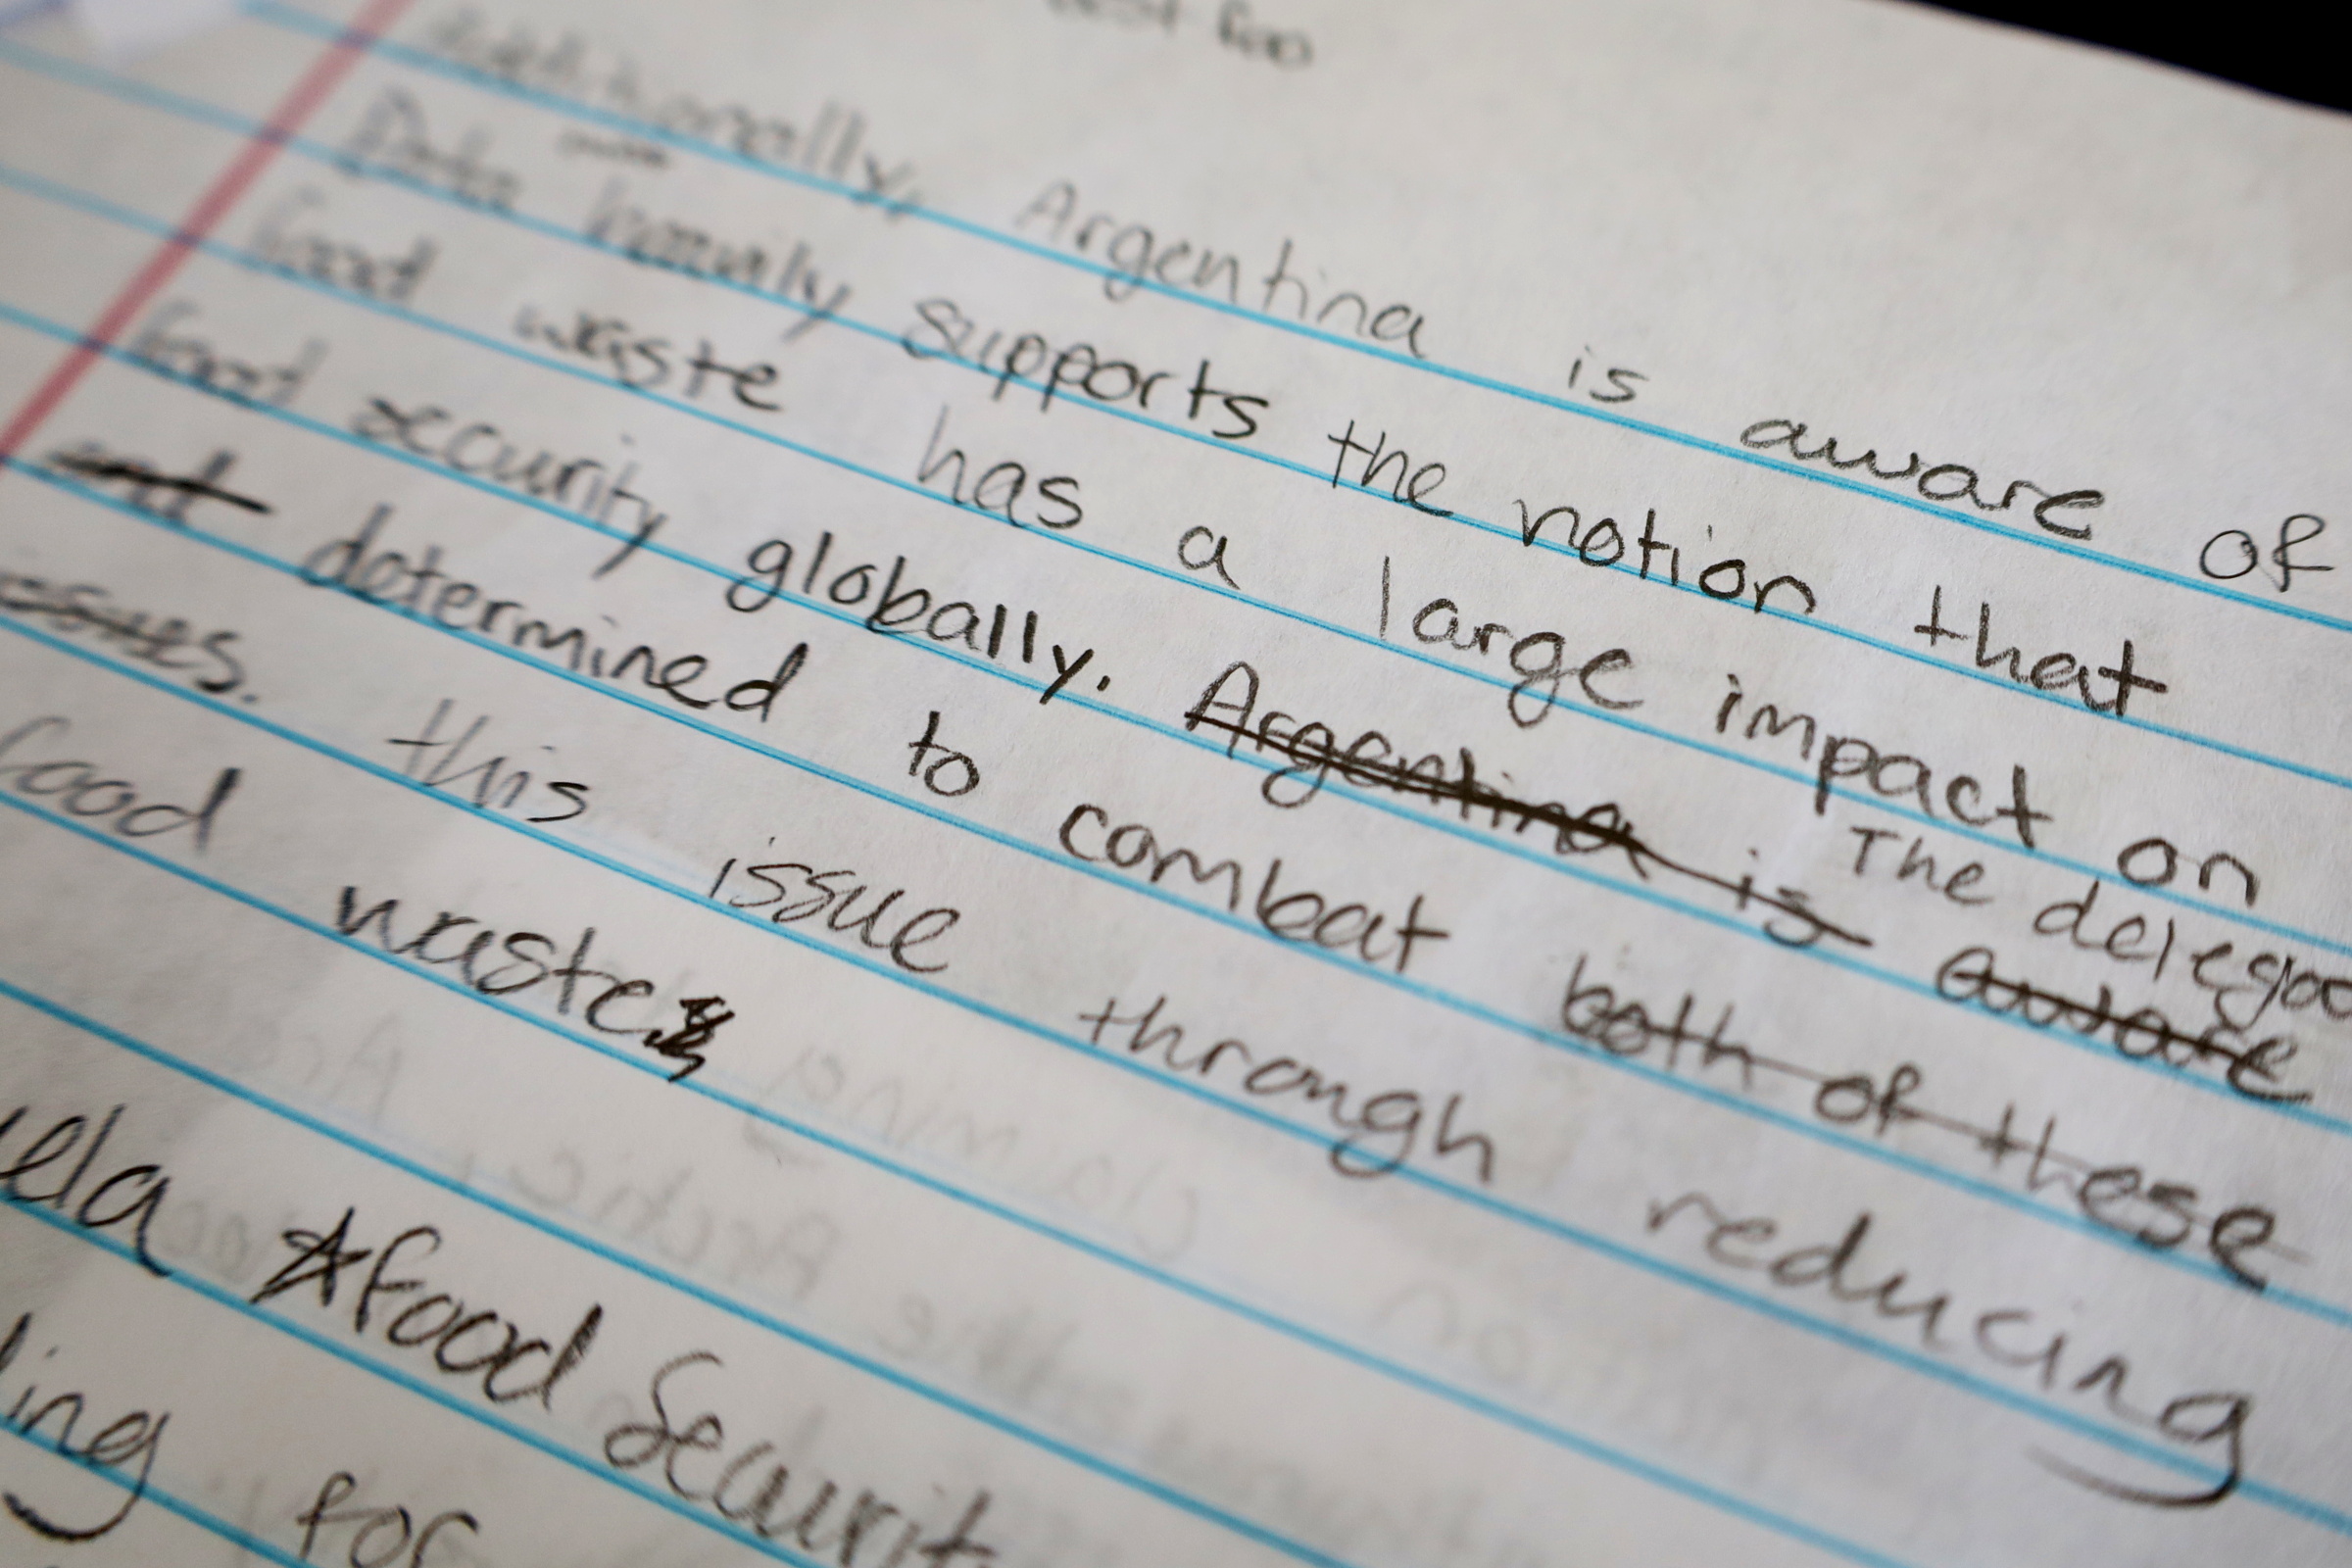 Additionally, Argentina is aware of
Data heavily supports the notion that
food waste has a large impact on
food security globally. Argentina is aware
The delega
and determined to combat both of these
issues. this issue through reducing
food waste.
ella ☆food Securit
ling for